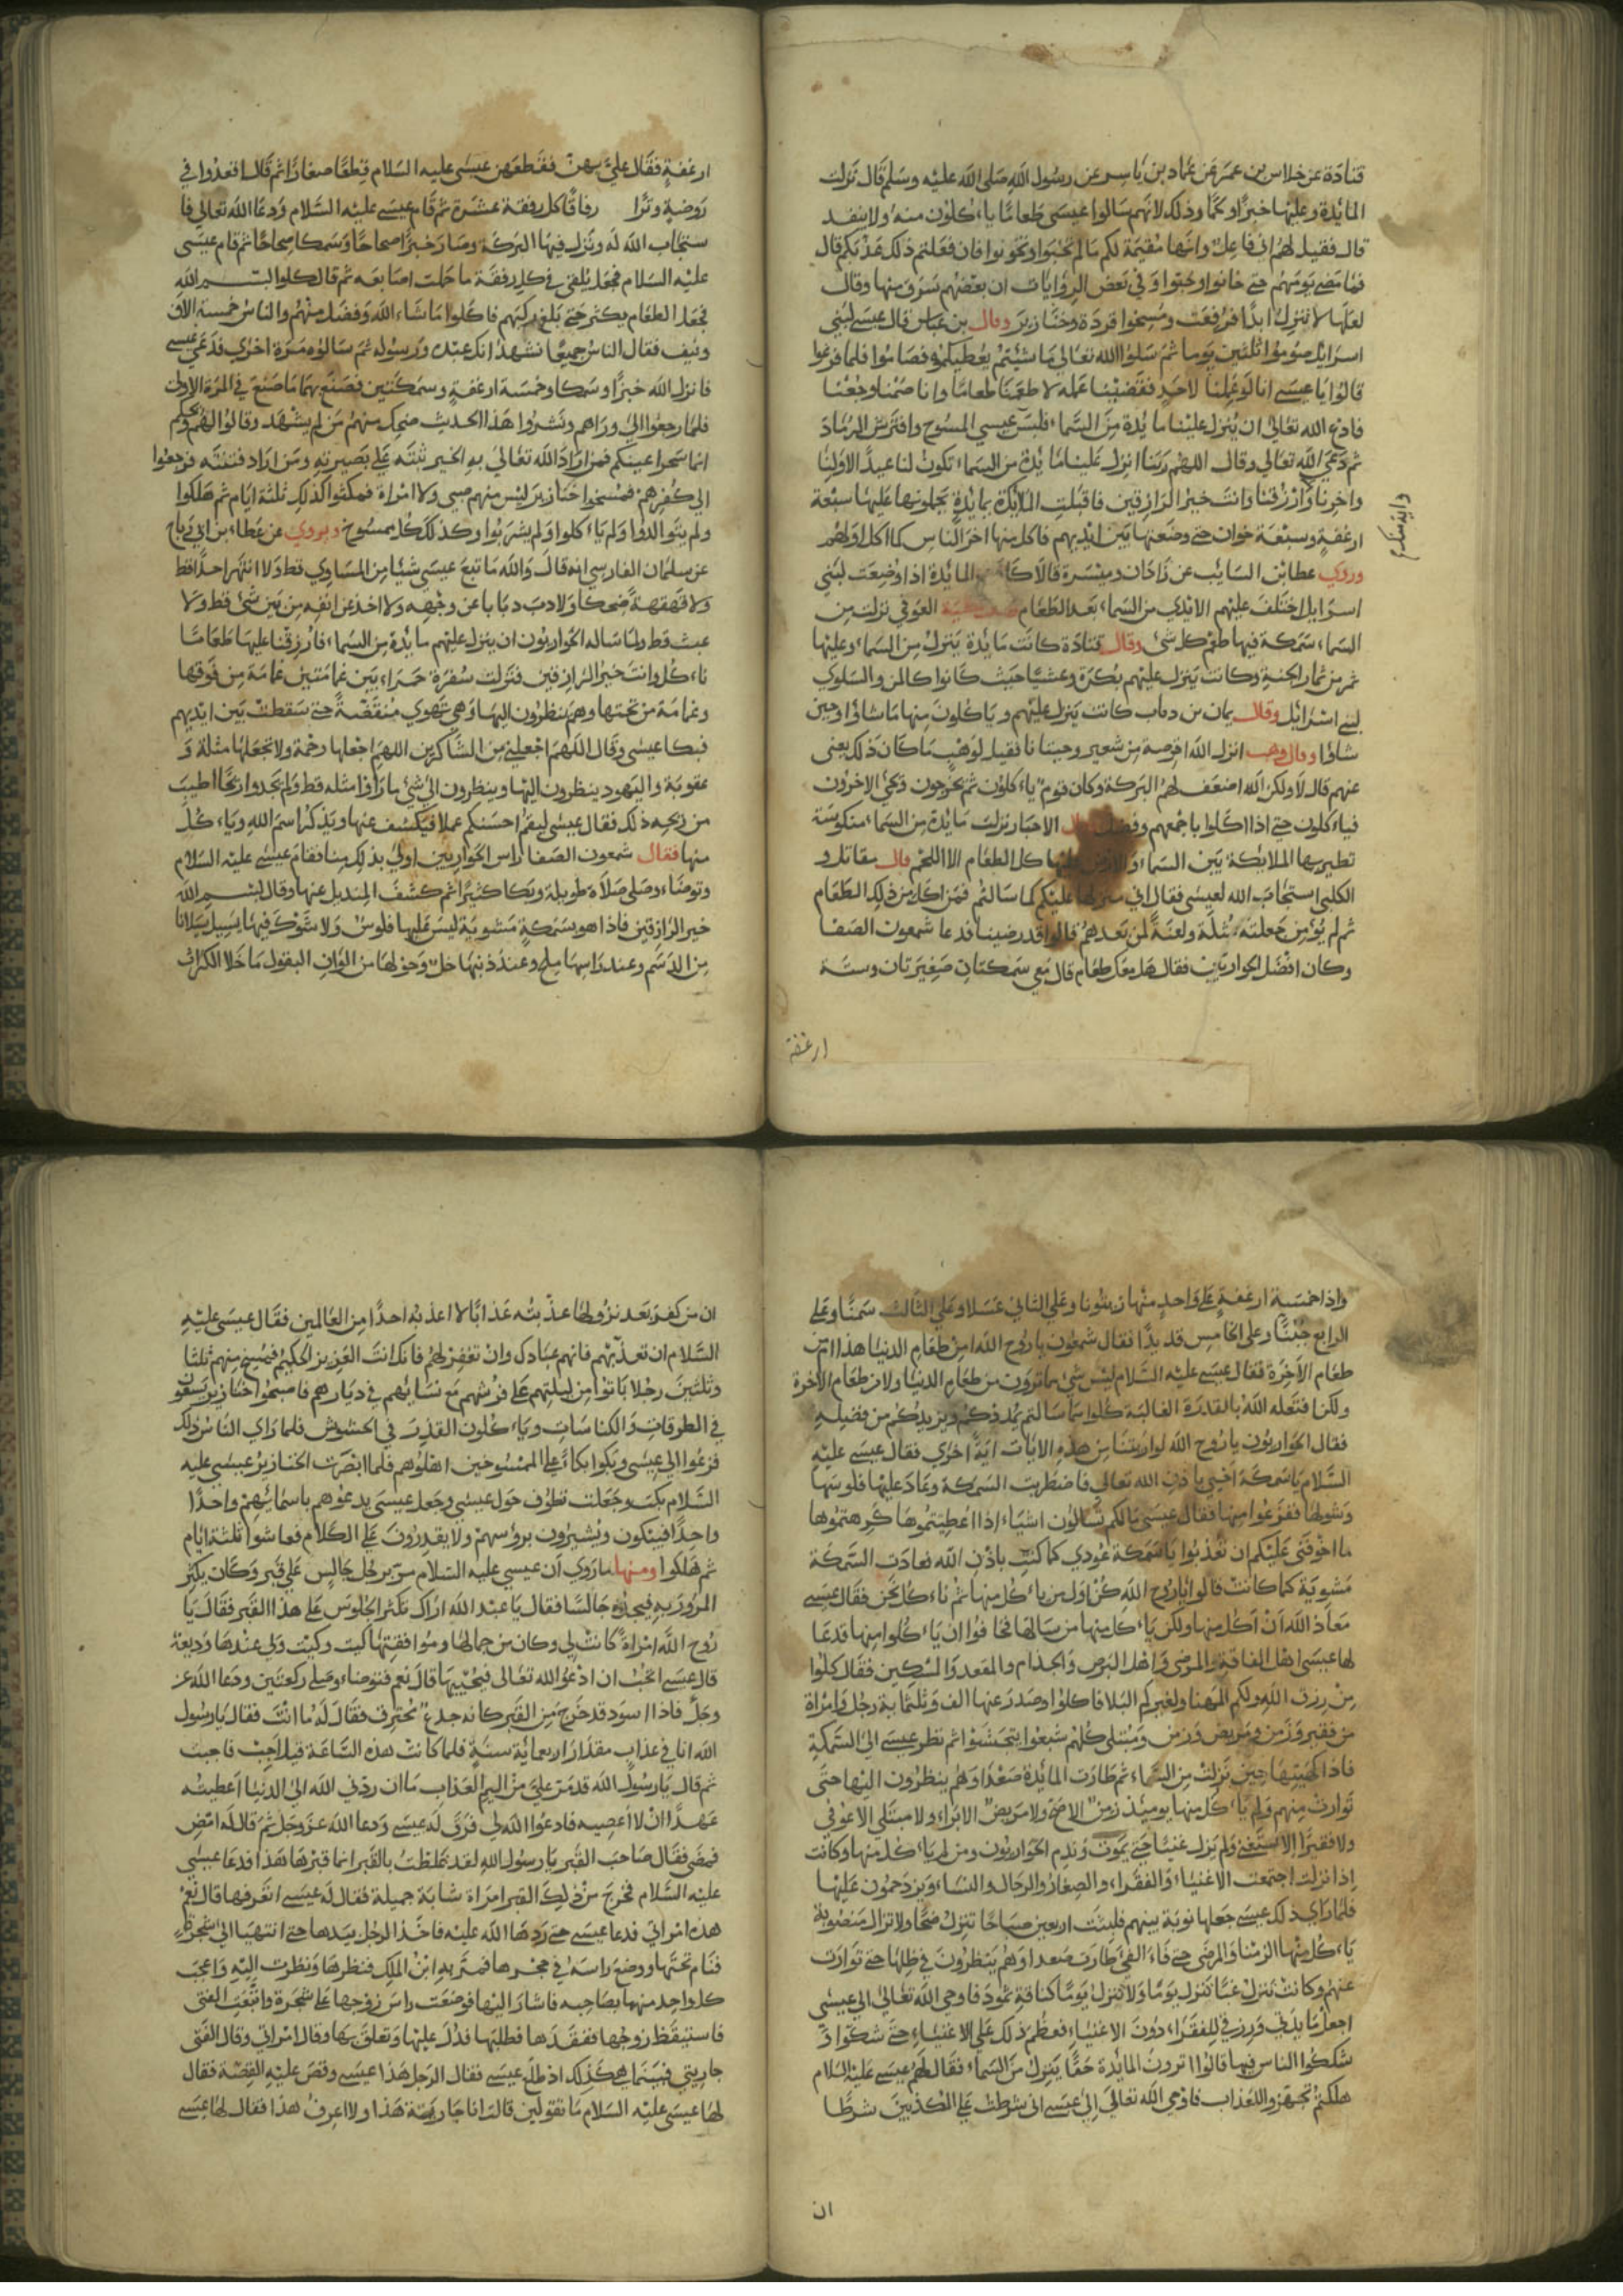 قتادة عن خلاس بن عمر عن عماد بن ياسر عن رسول الله صلى الله عليه وسلم قال نزلت
المائدة وعليها خبزا ولحما وذلك لانهم سالوا عيسى طعاما ياءكلون منه ولا ينفد
قال فقيل لهم انى فاعل وانها مقيمة لكم ما لم تخبوا وتخونوا فان فعلتم ذلك عذبتكم قال
فما مضى يومهم حتى خانوا وخبوا وفي بعض الروايات ان بعضهم سرق منها وقال
لعلها لا تنزل ابدا فرفعت ومسخوا قردة وخنازير وقال بن عباس قال عيسى لبني
اسرايل صوموا ثلثين يوما ثم سلوا الله تعالى ما شيتم يعطيكموه فصاموا فلما فرغوا
قالوا يا عيسى انا لو عملنا لاحد فقضينا عمله لاطعمنا طعاما وانا صمنا وجعنا
فادع الله تعالى ان ينزل علينا مائدة من السماء فلبس عيسى المسوح وافترش الرماد
ثم دعى الله تعالى وقال اللهم ربنا انزل علينا مائدة من السماء تكون لنا عيدا لاولنا
واخرنا وارزقنا وانت خير الرازقين فاقبلت الملايكة بمايدة يحملونها عليها سبعة
ارغفة وسبعة خوات حتى وضعتها بين ايديهم فاكل منها اخر الناس كما اكل اولهم
واية منكم
وروى عطا بن السايب عن زاذان وميسرة قالا كانت المايدة اذا وضعت لبني
اسرايل اختلف عليهم الايدي من السماء بعد الطعام عطية العوفي نزلت من
السماء سمكة فيها طعم كل شئ وقال قتادة كانت مايدة ينزل من السماء وعليها
ثمر من ثمار الجنة وكانت ينزل عليهم بكرة وعشيا حيث كانوا كالمن والسلوى
لبني اسرايل وقال يمان بن دياب كانت ينزل عليهم وياكلون منها ما شاؤا وحين
شاؤا وقال وهب انزل الله اقرصة من شعير وحيتانا فقيل لوهب ما كان ذلك يعنى
عنهم قال لا ولكن الله اضعف لهم البركة وكان قوم ياءكلون ثم يخرجون ويجئ الاخرون
فياءكلون حتى اذا اكلوا باجمعهم وفضل الاحبار نزلت مايدة من السماء منكوسة
تطير بها الملايكة بين السماء والارض عليها كل الطعام الا اللحم قال مقاتل و
الكلبي استجاب الله لعيسى فقال اني منزلها عليكم كما سالتم فمن اكل من ذلك الطعام
ثم لم يؤمن جعلته مثلة ولعنة لمن بعدهم قالوا قد رضينا فدعا شمعون الصفا
وكان افضل الحواريين فقال هل معك طعام قال معي سمكتان صغيرتان وستة
ارغفة
ارغفة فقال علي بهن فقطعهن عيسى عليه السلام قطعا صغارا ثم قال اقعدوا في
روضة وترا رفاقا كل رفقة عشرة ثم قام عيسى عليه السلام ودعا الله تعالى فا
ستجاب الله له ونزل فيها البركة وصار خبزا صحاحا وسمكا صحاحا ثم قام عيسى
عليه السلام فجعل يلقى في كل رفقة ما حملت اصابعه ثم قال كلوا بسم الله
فجعل الطعام يكثر حتى بلغ ركبهم فاكلوا ما شاء الله وفضل منهم والناس خمسة الاف
ونيف فقال الناس جميعا نشهد انك عبده ورسوله ثم سالوه مرة اخرى فدعى عيسى
فانزل الله خبزا وسمكا وخمسة ارغفة وسمكتين فصنع بهما ما صنع في المرة الاولى
فلما رجعوا الى وراهم ونشروا هذا الحديث ضحك منهم من لم يشهد وقالوا لهم ويحكم
انما سحر اعينكم فمن اراد الله تعالى به الخير ثبته على بصيرته ومن اراد فتنته فرجعوا
الى كفرهم فمسخوا خنازير ليس منهم صبي ولا امراة فمكثوا كذلك ثلثة ايام ثم هلكوا
ولم يتوالدوا ولم ياءكلوا ولم يشربوا وكذلك كل ممسوخ ويروى عن عطاء بن ابي رباح
عن سلمان الفارسي انه قال والله ما تبع عيسى شيئا من المساوي قط ولا انتهر احدا قط
ولا قهقهة ضحكا ولا دب ذبابا عن وجهه ولا اخذ عن انفه من بين شئ قط ولا
عبث قط ولما ساله الحواريون ان ينزل عليهم مايدة من السماء فارزقنا عليها طعاما
ناءكل وانت خير الرازقين فنزلت سفرة حمراء بين غمامتين غمامة من فوقها
وغمامة من تحتها وهم ينظرون اليها وهي تهوي منقضة حتى سقطت بين ايديهم
فبكا عيسى وقال اللهم اجعلني من الشاكرين اللهم اجعلها رحمة ولا تجعلها مثلة و
عقوبة واليهود ينظرون اليها وينظرون الى شئ ما راوا مثله قط ولم يجدوا ريحا اطيب
من ريحه ذلك فقال عيسى ليقم احسنكم عملا فيكشف عنها ويذكر اسم الله وياءكل
منها فقال شمعون الصفا راس الحواريين اولى بذلك منا فقام عيسى عليه السلام
وتوضاء وصلى صلاة طويلة وبكا كثيرا ثم كشف المنديل عنها وقال بسم الله
خير الرازقين فاذا هو سمكة مشوية ليس عليها فلوس ولا شوك فيها يسيل سيلانا
من الدسم وعند راسها ملح وعند ذنبها خل وحولها من الوان البقول ما خلا الكراث
واذا خمسة ارغفة على واحد منها زيتونا وعلى الثاني عسلا وعلى الثالث سمنا وعلى
الرابع جبنا وعلى الخامس قديدا فقال شمعون يا روح الله امن طعام الدنيا هذا ام من
طعام الاخرة فقال عيسى عليه السلام ليس شئ مما ترون من طعام الدنيا ولا من طعام الاخرة
ولكن افتعله الله بالقدرة الغالبة كلوا مما سالتم يمددكم ويزيدكم من فضله
فقال الحواريون يا روح الله لو اريتنا من هذه الايات اية اخرى فقال عيسى عليه
السلام يا سمكة احيى باذن الله تعالى فاضطربت السمكة وعاد عليها فلوسها
وشوكها ففزعوا منها فقال عيسى مالكم تسالون اشياء اذا اعطيتموها كرهتموها
ما اخوفنى عليكم ان تعذبوا يا سمكة عودي كما كنت باذن الله فعادت السمكة
مشوية كما كانت قالوا يا روح الله كن اول من ياءكل منها ثم ناءكل نحن فقال عيسى
معاذ الله ان اكل منها ولكن ياءكل منها من سالها فخافوا ان ياءكلوا منها فدعا
لها عيسى اهل الفاقة والمرضى واهل البرص والجذام والمقعد والمسكين فقال كلوا
من رزق الله ولكم المهنا ولغيركم البلا فاكلوا وصدر عنها الف وثلثماية رجل وامراة
من فقير وزمن ومريض وزمن ومبتلى كلهم شبعوا يتجشئوا ثم نظر عيسى الى السمكة
فاذا كهيئتها حين نزلت من السماء ثم طارت المائدة صعدا وهم ينظرون اليها حتى
توارت منهم ولم ياءكل منها يوميئذ زمن الا صح ولا مريض الا براء ولا مبتلي الا عوفي
ولا فقيرا الا استغنى ولم يزل غنيا حتى يموت وندم الحواريون ومن لم ياءكل منها وكانت
اذا نزلت اجتمعت الاغنياء والفقراء والصغار والرجال والنساء ويزدحمون عليها
فلما راى ذلك عيسى جعلها نوبة بينهم فلبثت اربعين صباحا تنزل ضحا ولا تزال منصوبة
ياءكل منها الزمنا والمرضى حتى فاء الفئ طارت صعدا وهم ينظرون في ظلها حتى توارت
عنهم وكانت تنزل غبا تنزل يوما ولا تنزل يوما كناقة ثمود فاوحى الله تعالى الى عيسى
اجعل مايدتي ورزقي للفقراء دون الاغنياء فعظم ذلك على الاغنياء حتى شكوا و
شككوا الناس فيها قالوا اترون المايدة حقا ينزل من السماء فقال لهم عيسى عليه السلام
هلكتم تجهزوا للعذاب فاوحى الله تعالى الى عيسى انى شرطت على المكذبين شرطا
ان
ان من كفر بعد نزولها عذبته عذابا لا اعذبه احدا من العالمين فقال عيسى عليه
السلام ان تعذبهم فانهم عبادك وان تغفر لهم فانك انت العزيز الحكيم فمسخ منهم ثلثا
وثلثين رجلا باتوا من ليلتهم على فرشهم مع نسايهم في ديارهم فاصبحوا خنازير يسعون
في الطرقات والكناسات وياءكلون القذر في الحشوش فلما راى الناس ذلك
فزعوا الى عيسى وبكوا بكاء على الممسوخين اهلوهم فلما ابصرت الخنازير عيسى عليه
السلام بكت وجعلت تطوف حول عيسى وجعل عيسى يدعوهم باسمايهم واحدا
واحدا فيبكون ويشيرون برؤسهم ولا يقدرون على الكلام فعاشوا ثلثة ايام
ثم هلكوا ومنها ما روي ان عيسى عليه السلام مر برجل جالس على قبر وكان يكثر
المرور به فيجده جالسا فقال يا عبد الله اراك تكثر الجلوس على هذا القبر فقال يا
روح الله امراة كانت لي وكان من جمالها وموافقتها كيت وكيت ولى عندها وديعة
قال عيسى اتحب ان ادعو الله تعالى فيحييها قال نعم فتوضاء وصلى ركعتين ودعا الله عز
وجل فاذا اسود قد خرج من القبر كانه جذع محترق فقال له ما انت فقال يا رسول
الله انا في عذاب مقدار اربعماية سنة فلما كانت هذه الساعة قيل اجب فاجبت
ثم قال يا رسول الله قد مر على من اليم العذاب ما ان ردني الله الى الدنيا اعطيته
عهدا ان لا اعصيه فادعوا الله لى فرق له عيسى ودعا الله عز وجل ثم قال له امض
فمضى فقال صاحب القبر يا رسول الله لقد غلطت بالقبر انما قبرها هذا فدعا عيسى
عليه السلام فخرج من ذلك القبر امراة شابة جميلة فقال له عيسى اتعرفها قال نعم
هذه امراتي فدعا عيسى حتى ردها الله عليه فاخذ الرجل بيدها حتى انتهيا الى شجرة
فنام تحتها ووضع راسه في حجرها فمر به ابن الملك فنظرها ونظرت اليه واعجب
كل واحد منهما بصاحبه فاشار اليها فوضعت راس زوجها على شجرة واتبعت الفتى
فاستيقظ زوجها ففقدها فطلبها فدل عليها وتعلق بها وقال امراتي وقال الفتى
جاريتي فبينما هي كذلك اذ طلع عيسى فقال الرجل هذا عيسى وقص عليه القصة فقال
لها عيسى عليه السلام ما تقولين قالت انا جارية هذا ولا اعرف هذا فقال لها عيسى